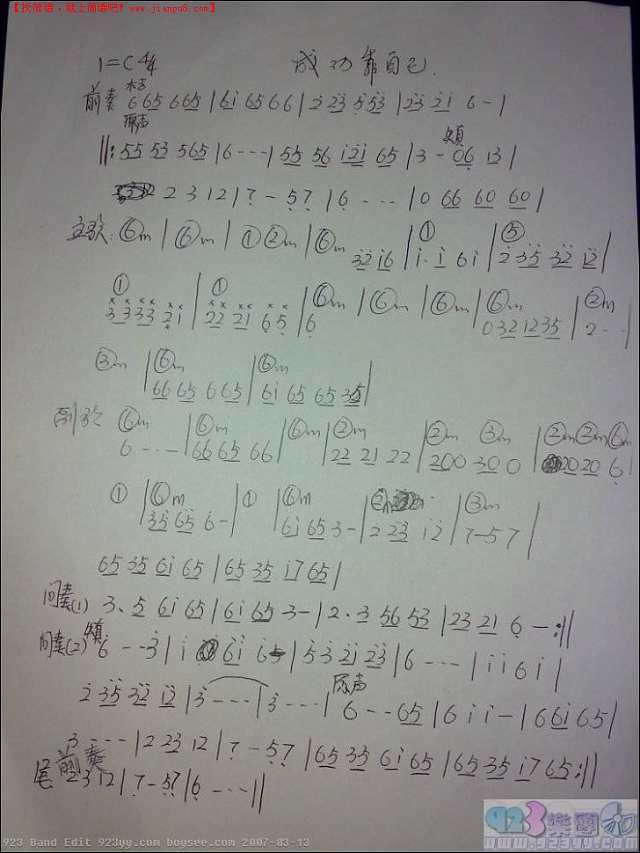 【找简谱，就上简谱吧！www.jianpu8.com】
1=C 4/4 成功靠自己.
木吉
前奏 6 65 665 | 6i 65 66 | 2 23 5 53 | 23 21 6 - |
原声
||: 55 53 565 | 6 - - - | 55 56 i2i 65 | 3 - 06 13 |
2 3 12 | 7 - 57 | 6 - - - | 0 66 60 60 |
主歌: ⑥m | ⑥m | ① ②m | ⑥m 32 i6 | ① i · i 6 i | ⑤ 2 35 32 12 |
① 3 3 33 21 | ① 22 21 6 5 | ⑥m 6 | ⑥m | ⑥m | ⑥m 032 1235 | ②m 2 - - |
③m | ⑥m 66 65 665 | ⑥m 6i 65 65 35 |
副歌 ⑥m 6 - - - | ⑥m 66 65 66 | ⑥m | ②m 22 21 22 | ②m ③m 200 300 | ②m ②m ⑥m 00 20 6
① | ⑥m 35 65 6 - | ① | ⑥m 6i 65 3 - | ② 2 23 i 2 | ③m 7 - 5 7 |
65 35 6i 65 | 65 35 i7 65 |
间奏(1) 3 · 5 6i 65 | 6i 65 3 - | 2 · 3 56 53 | 23 21 6 - :||
间奏(2) 6 - - 3 | i 6i 6 | 53 21 23 | 6 - - - | i i 6 i |
原声
2 35 32 12 | 3 - - - | 3 - - - | 6 - - 65 | 6 i i - | 6 6i 65 |
3 - - - | 2 23 12 | 7 - 57 | 65 35 6i 65 | 65 35 i7 65 :||
尾 前奏 23 12 | 7 - 57 | 6 - - - ||
923樂團
www.923yy.com
923 Band Edit 923yy.com boysee.com 2007-03-13